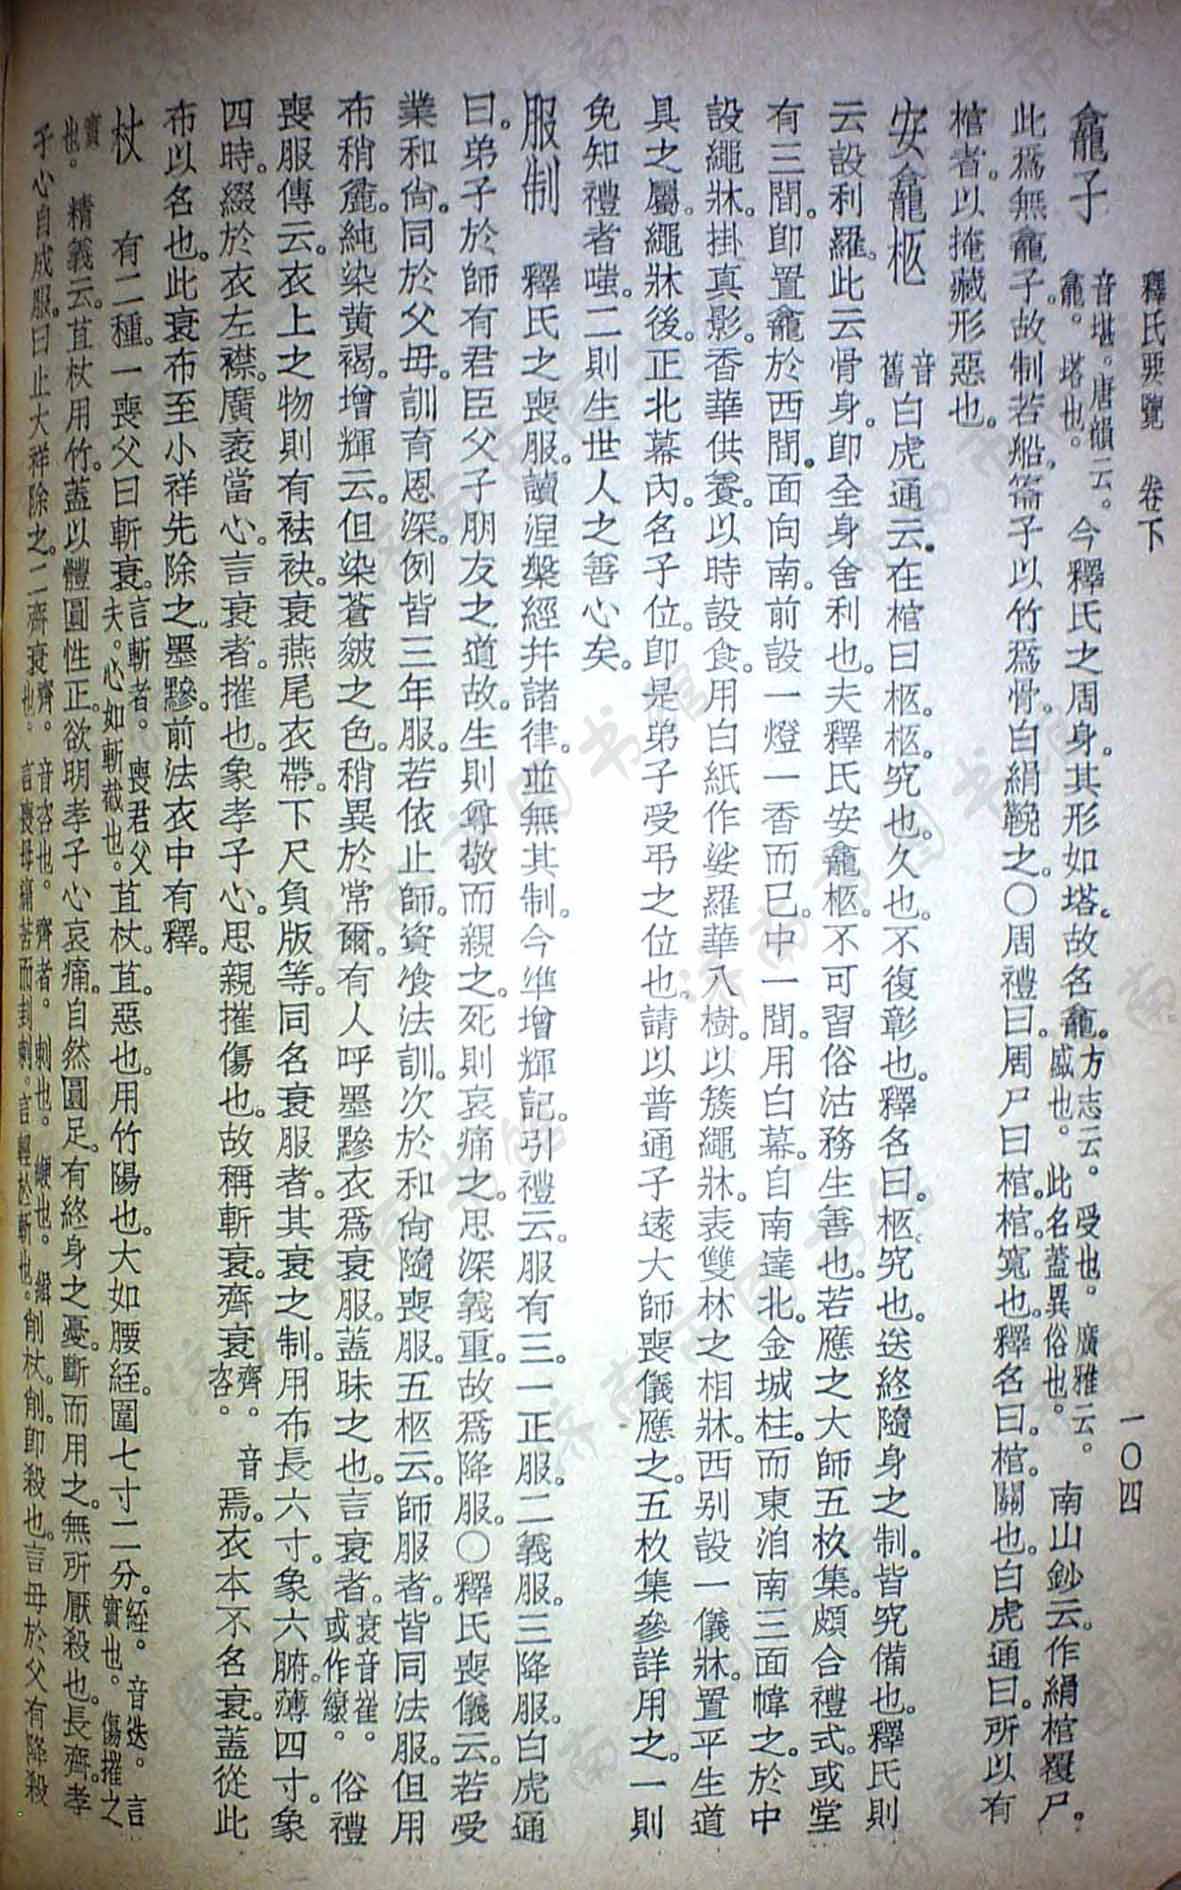 釋氏要覽　卷下　一〇四
龕子　音堪。唐韻云。龕。塔也。今釋氏之周身。其形如塔。故名龕。方志云。受也。廣雅云。盛也。此名蓋異俗也。南山鈔云。作絹棺覆尸。
此爲無龕子。故制若船。䈁子以竹爲骨。白絹鞔之。〇周禮曰。周尸曰棺。棺。寬也。釋名曰。棺。關也。白虎通曰。所以有
棺者。以掩藏形惡也。
安龕柩　音舊　白虎通云。在棺曰柩。柩。究也。久也。不復彰也。釋名曰。柩究也。送終隨身之制。皆究備也。釋氏則
云設利羅。此云骨身。卽全身舍利也。夫釋氏安龕柩。不可習俗沽務生善也。若應之大師五杦集。頗合禮式。或堂
有三間。卽置龕於西間。面向南。前設一燈一香而已。中一間。用白幕。自南達北。金城柱。而東洎南三面幃之。於中
設繩牀。掛真影。香華供養。以時設食。用白紙作娑羅華八樹。以簇繩牀。表雙林之相牀。西别設一儀牀。置平生道
具之屬。繩牀後。正北幕內。名子位。卽是弟子受弔之位也。請以普通子遠大師喪儀應之。五杦集參詳用之。一則
免知禮者嗤。二則生世人之善心矣。
服制　釋氏之喪服。讀涅槃經并諸律。並無其制。今準增輝記。引禮云。服有三。一正服。二義服。三降服。白虎通
曰。弟子於師有君臣父子朋友之道故。生則尊敬而親之。死則哀痛之。思深義重。故爲降服。〇釋氏喪儀云。若受
業和尙。同於父母。訓育恩深。例皆三年服。若依止師。資飡法訓。次於和尙隨喪服。五柩云。師服者。皆同法服。但用
布稍麄。純染黄褐。增輝云。但染蒼皴之色。稍異於常爾。有人呼墨黲衣爲衰服。蓋昧之也。言衰者。衰音崔。或作縗。俗禮
喪服傳云。衣上之物則有袪袂。衰燕尾衣帶。下尺負版等。同名衰服者。其衰之制。用布長六寸。象六腑。薄四寸。象
四時。綴於衣左襟。廣袤當心。言衰者。摧也。象孝子心。思親摧傷也。故稱斬衰。齊衰。齊。音咨。焉。衣本不名衰。蓋從此
布以名也。此衰布至小祥先除之。墨黲。前法衣中有釋。
杖　有二種。一喪父曰斬衰。言斬者。喪君父夫。心如斬截也。苴杖。苴。惡也。用竹陽也。大如腰絰。圍七寸二分。絰。音迭。言實也。傷摧之
實也。精義云。苴杖用竹。蓋以體圓性正。欲明孝子心哀痛。自然圓足。有終身之憂。斷而用之。無所厭殺也。長齊。孝
子心自成服。曰止大祥除之。二齊衰齊。音咨也。齊者。剌也。緶也。緝也。言喪母痛苦而刲剌。言輕於斬也。削杖。削。卽殺也。言母於父有降殺